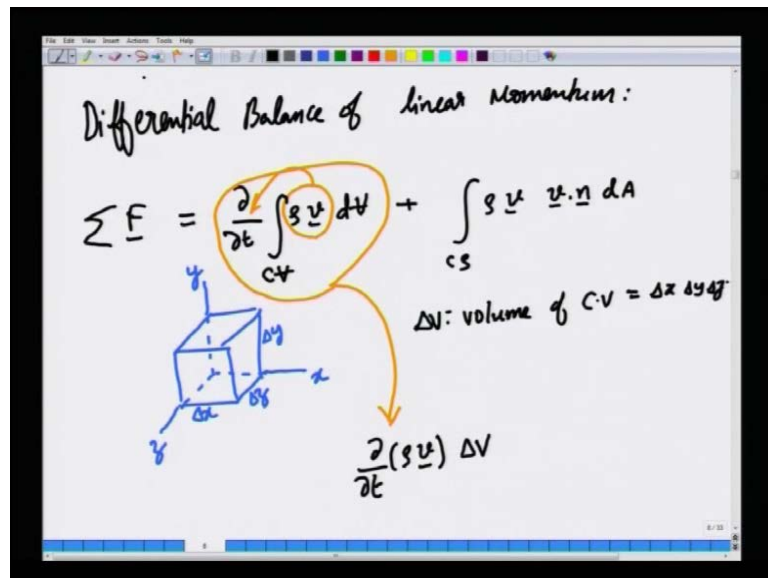 File Edit View Insert Actions Tools Help
Differential Balance of linear Momentum:
∑ F = ∂/∂t ∫ ρ v dV + ∫ ρ v v.n dA
CV CS
y
ΔV: volume of C.V = Δx Δy Δz
Δy
x
Δx Δz
z
∂/∂t (ρ v) ΔV
8/33
6